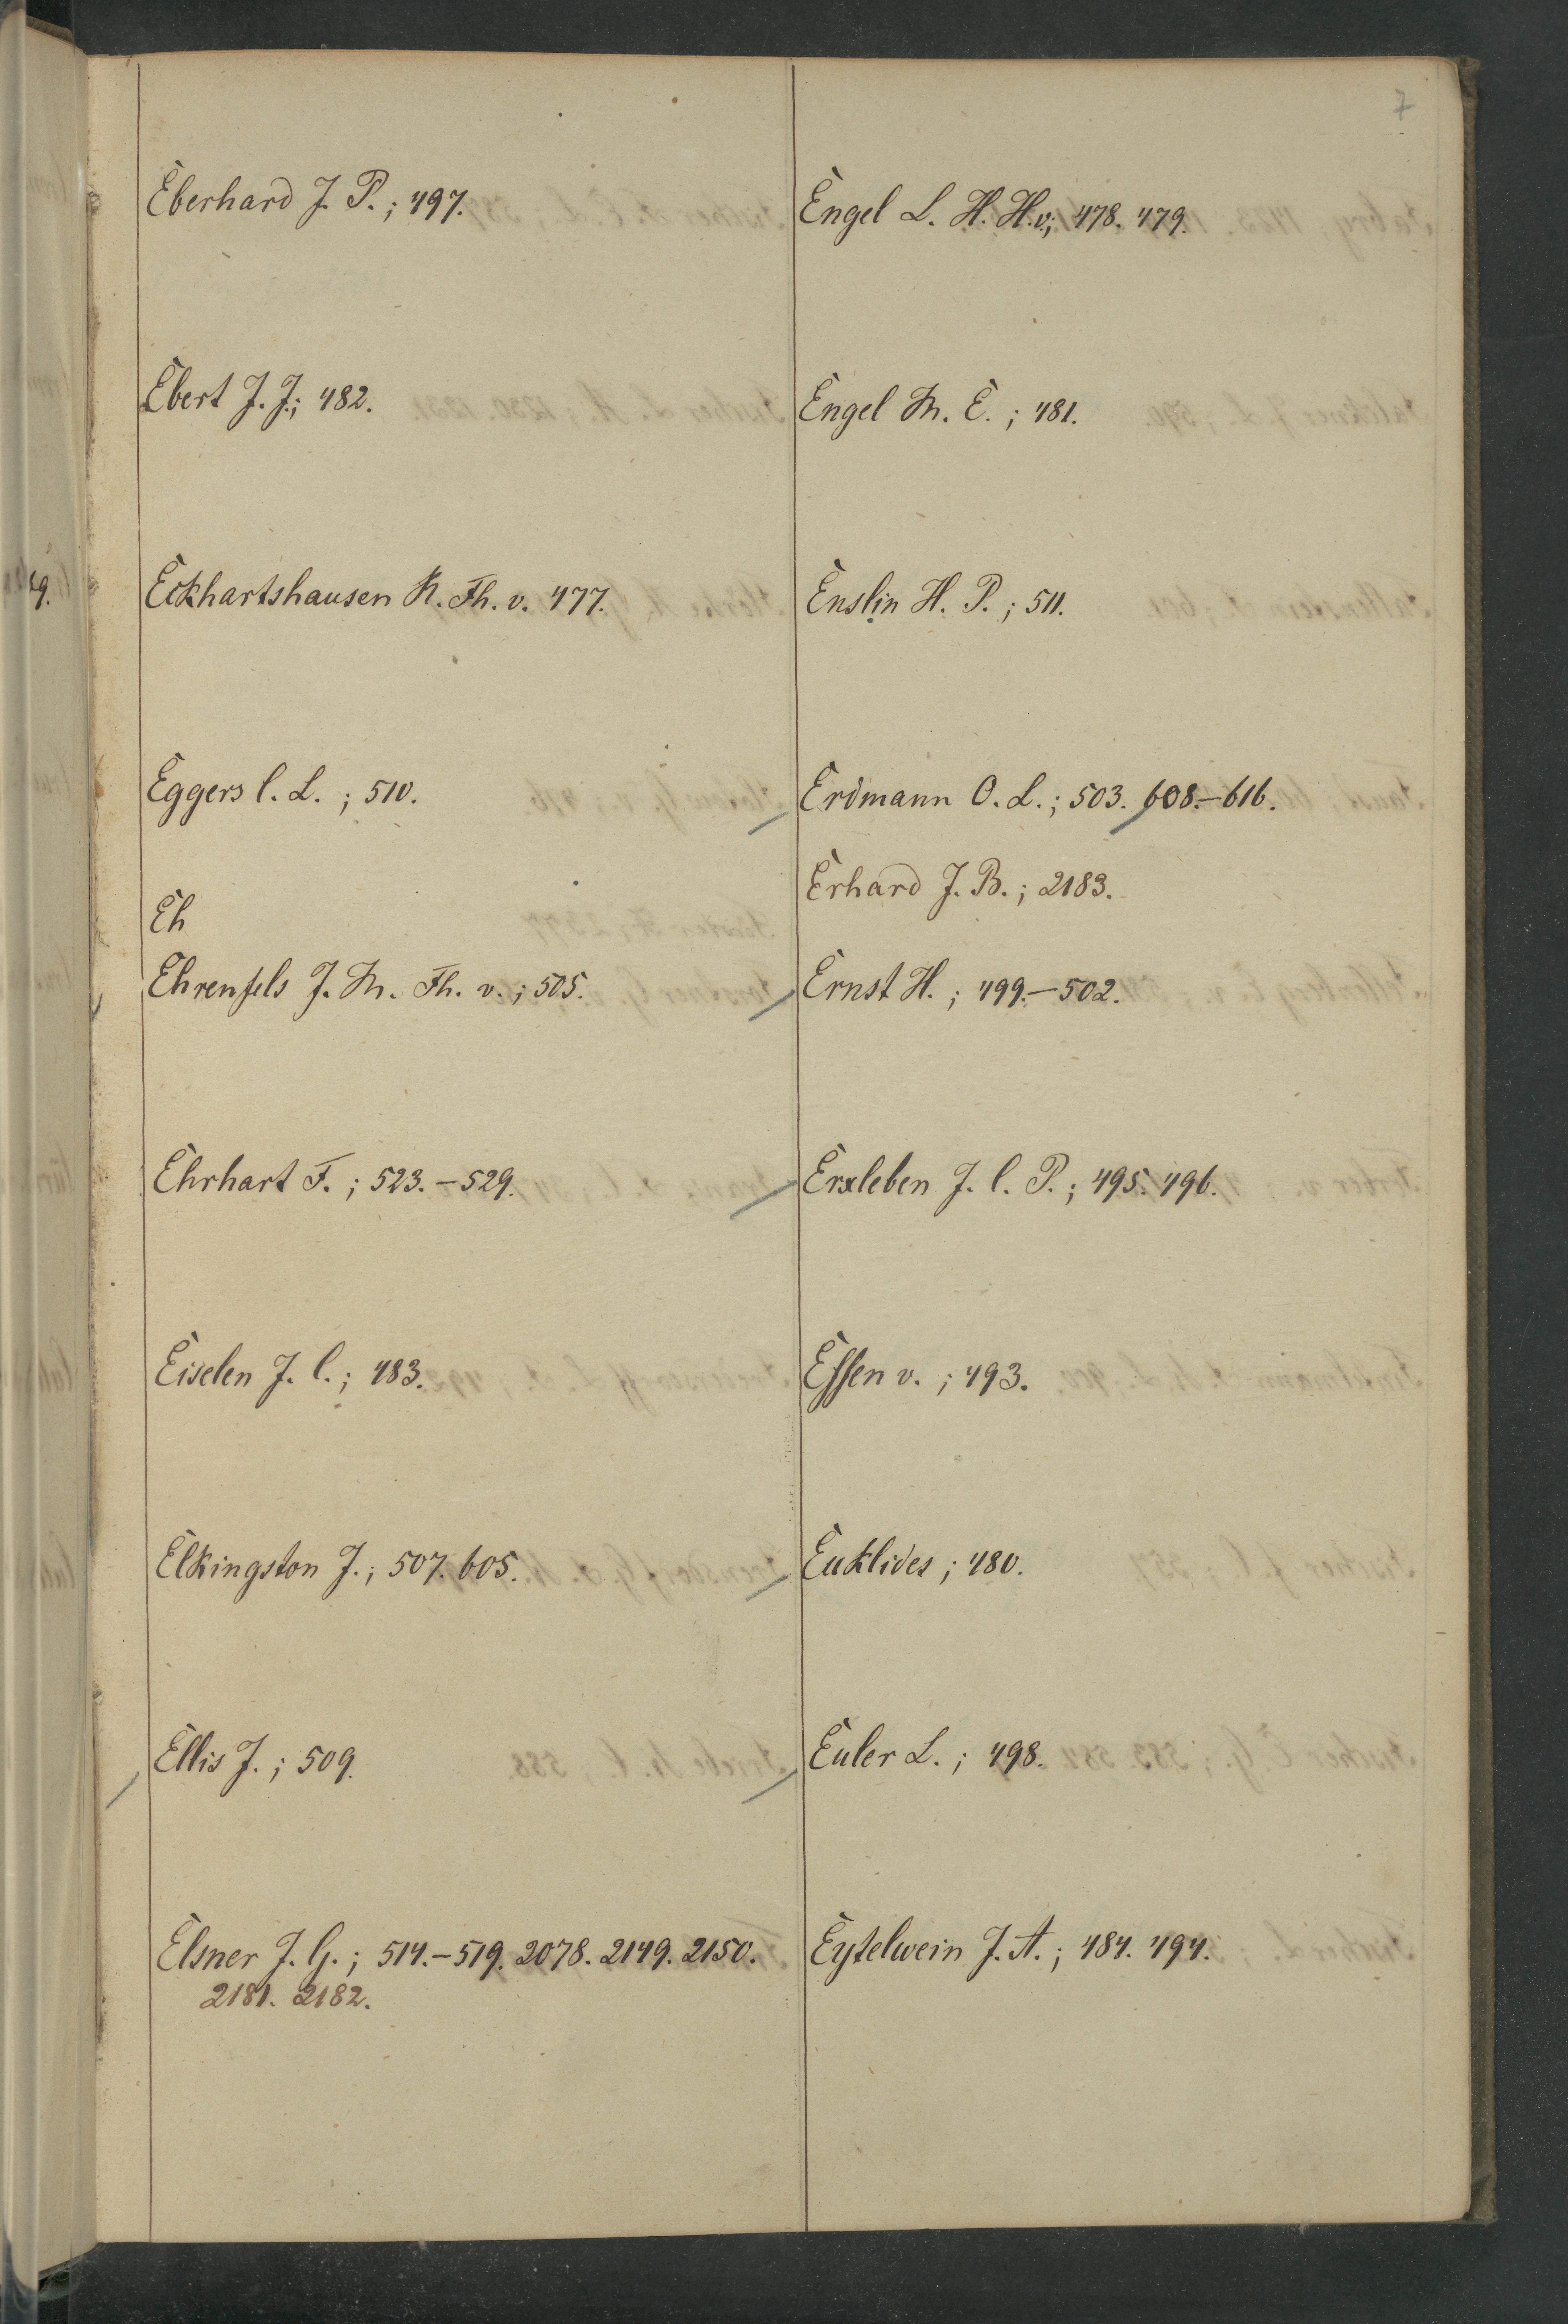 7
Eberhard J. P.; 497.
Ebert J. J.; 482.
Eckhartshausen K. Th. v. 477.
Eggers C. L.; 510.
Eh
Ehrenfels J. M. Th. v.; 505.
Ehrhart F.; 523.-529.
Eiselen J. C.; 483.
Elkingston J.; 507. 605.
Ellis J.; 509.
Elsner J. G.; 514.-519. 2078. 2149. 2150.
2181. 2182.
Engel L. H. H. v.; 478. 479.
Engel M. E.; 481.
Enslin H. P.; 511.
Erdmann O. L.; 503. 608.-616.
Erhard J. B.; 2183.
Ernst H.; 499.-502.
Erxleben J. C. P.; 495. 496.
Essen v.; 493.
Euklides; 480.
Euler L.; 498.
Eytelwein J. A.; 484. 494.